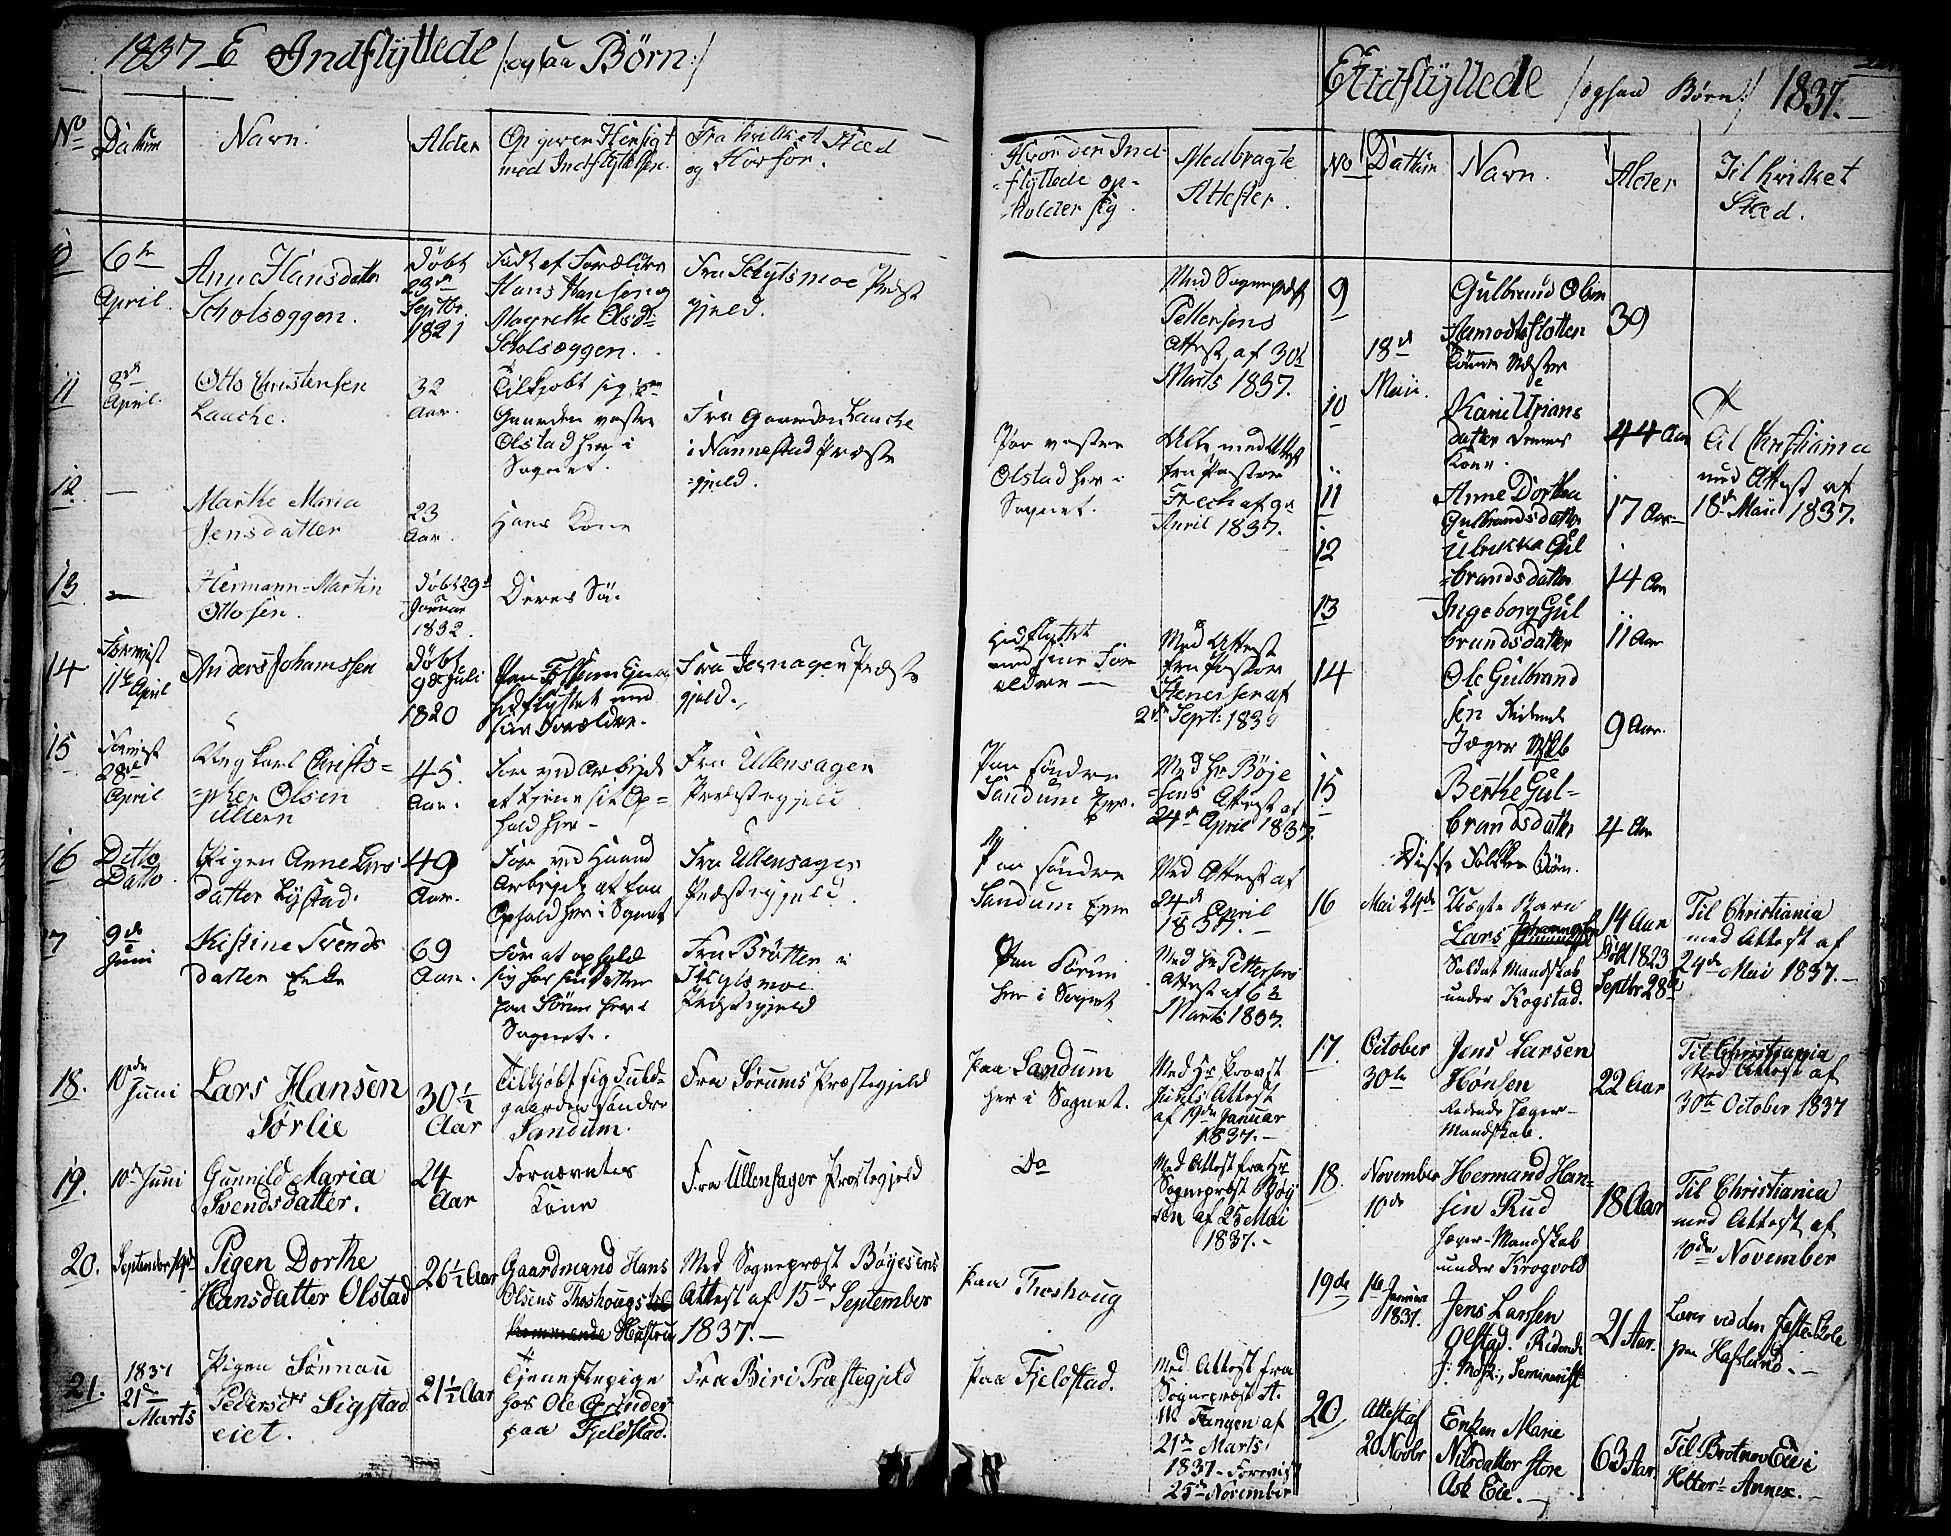 1837 E Indflyttede /:ogsaa Børn:/
No
Datum
Navn.
Alder
Opgiven Hensigt
med Indflyttelsen.
Fra hvilket Stæd
og Hvorfor.
Hvor den Ind-
flyttede op-
holder sig.
Medbragte
Attester.
6te
April.
Anne Hansdatter
Scholsæggen.
Døbt
23de
Septbr.
1821
Født af Forældre
Hans Hansen og
Magrethe Olsdr
Scholsæggen.
Præste
gjeld.
Med Sognepræst
Pettersens
Attest af 30te
Marts 1837.
11
8de
April.
Otto Christensen
Laache.
32
Aar.
Tilkjøbt sig
Gaarden vestre
Olstad her i
Sognet.
Fra Gaarden Laache
i Nannestad Præste
gjeld.
Paa vestre
Olstad her i
Sognet.
fra Pastor
April 1837.
12
—
Marthe Maria
Jensdatter
23
Aar.
Hans Kone
13
—
Hermann Martin
Ottosen.
Døbt 29de
Januar
1832.
Deres Søn
14
Forevist
11te April
Anders Johannssen
Døbt
9de Juli
1820
hidflyttet med
sine Forældre.
Fra Præste
gjeld.
Hidflyttet
med sine For
ældre —
Med Attest
fra Pastor
Stenersen af
2de Sept:
15
Forevist
28de
April
Ungkarl Christo=
=pher Olsen
Ullern
45.
Aar.
For ved Arbejde
at tjene sit Op=
hold her –
Fra Ullensager
Præstegjeld
Paa søndre
Sandum Eger.
Med Hr. Bøje
=sens Attest af
24de April 1837.
16
Ditto
Datto
Pigen Anne Lars
datter Lystad.
49
Aar.
For ved Haand
Arbejde at faa
Ophold her i Sognet
Fra Ullensager
Præstegjeld.
Paa søndre
Sandum Eger
Med Attest af
24de April
1837. –
17
9de
Juni
Kistine Svends
datter Enke
69
Aar.
For at ophold
sig hos sin datter
paa Sörum her i
Sognet.
Fra Brøtten i
Præstegjeld
Paa Sörum
her i Sognet
Med Hr. Pettersens
Attest af 6te
Marts 1837.
18.
10de
Juni
Lars Hansen
Sørlie
30½
Aar
Tilkjøbt sig Fuld-
gaarden søndre
Sandum.
Fra Sørums Præstegjeld
Paa Sandum
her i Sognet.
Med Hr. Provst
Attest
af 19de Januar
1837. –
19.
10de Juni
Gunnild Maria
Svendsdatter.
24
Aar
Fornævntes
Kone
Fra Ullensager Præstegjeld
Do
Med Attest fra Hr
Sognepræst Bøy
sen af 25 Mai
1837. –
20.
September
Pigen Dorthe
Hansdatter Olstad
26½ Aar
Gaardmand Hans
Olsens Thoshougs
Hustru
Med Sognepræst Bøgesens
Attest af 15de September
1837. –
paa Thoshoug
21.
1837
21de
Marts
Pigen Sønnau
Pedersdr Sigstad
eiet.
21½ Aar
Tjenestepige
hos Ole Grinder
paa Fjeldstad.
Fra Biri Præstegjeld
paa Fjeldstad.
Med Attest fra
Sognepræst A.
W. Fangen af
21de Marts
1837 – Forevist
25de November
Udflyttede /:ogsaa Børn:/ 1837. –
No
Datum
Navn.
Alder
Til hvilket
Stæd.
9
18de
Maii.
Gulbrand Olsen
39
10
Karie Urians
datter
Kone.
44 Aar
Til Christiania
med Attest af
18de Maii 1837.
11
Anne Dorthea
Gulbrandsdatter
17 Aar
12
Ulrikka Gul
=brandsdatter
14 Aar
13
Ingeborg Gul
brandsdatter
11 Aar
14
Ole Gulbrand
sen
Jæger
9 Aar.
15
Berthe Gul=
brandsdatter
4 Aar
Disse Folkes Børn.
16
Mai 24de
Uægte Barn
Lars
Soldat Mandskab
under Kogstad.
14 Aar
Døbt 1823
Septbr 28de
Til Christiania
med Attest af
24de Mai 1837. –
17.
October
30te
Jens Larsen
Hønsen
Ridende Jæger-
Mandskab.
22 Aar
Til Christiania
Med Attest af
30te October 1837
18.
November
10de
Hermand Han=
sen Rud
Jæger-Mandskab
under Krogvold
18 Aar
Til Christiania
med Attest af
10de November
19de
1te Januar
1837.
Jens Larsen
Olstad. Ridende
J: Mdsk:, Seminarist
21 Aar.
Lærer ved den faste Skole
paa Hafslund. –
20
Attest af
20 Novbr
Enken Marie
Nilsdatter Store
Ask Eie. –
63 Aar.
Til Brotnov Eie i
Holter Annex. –